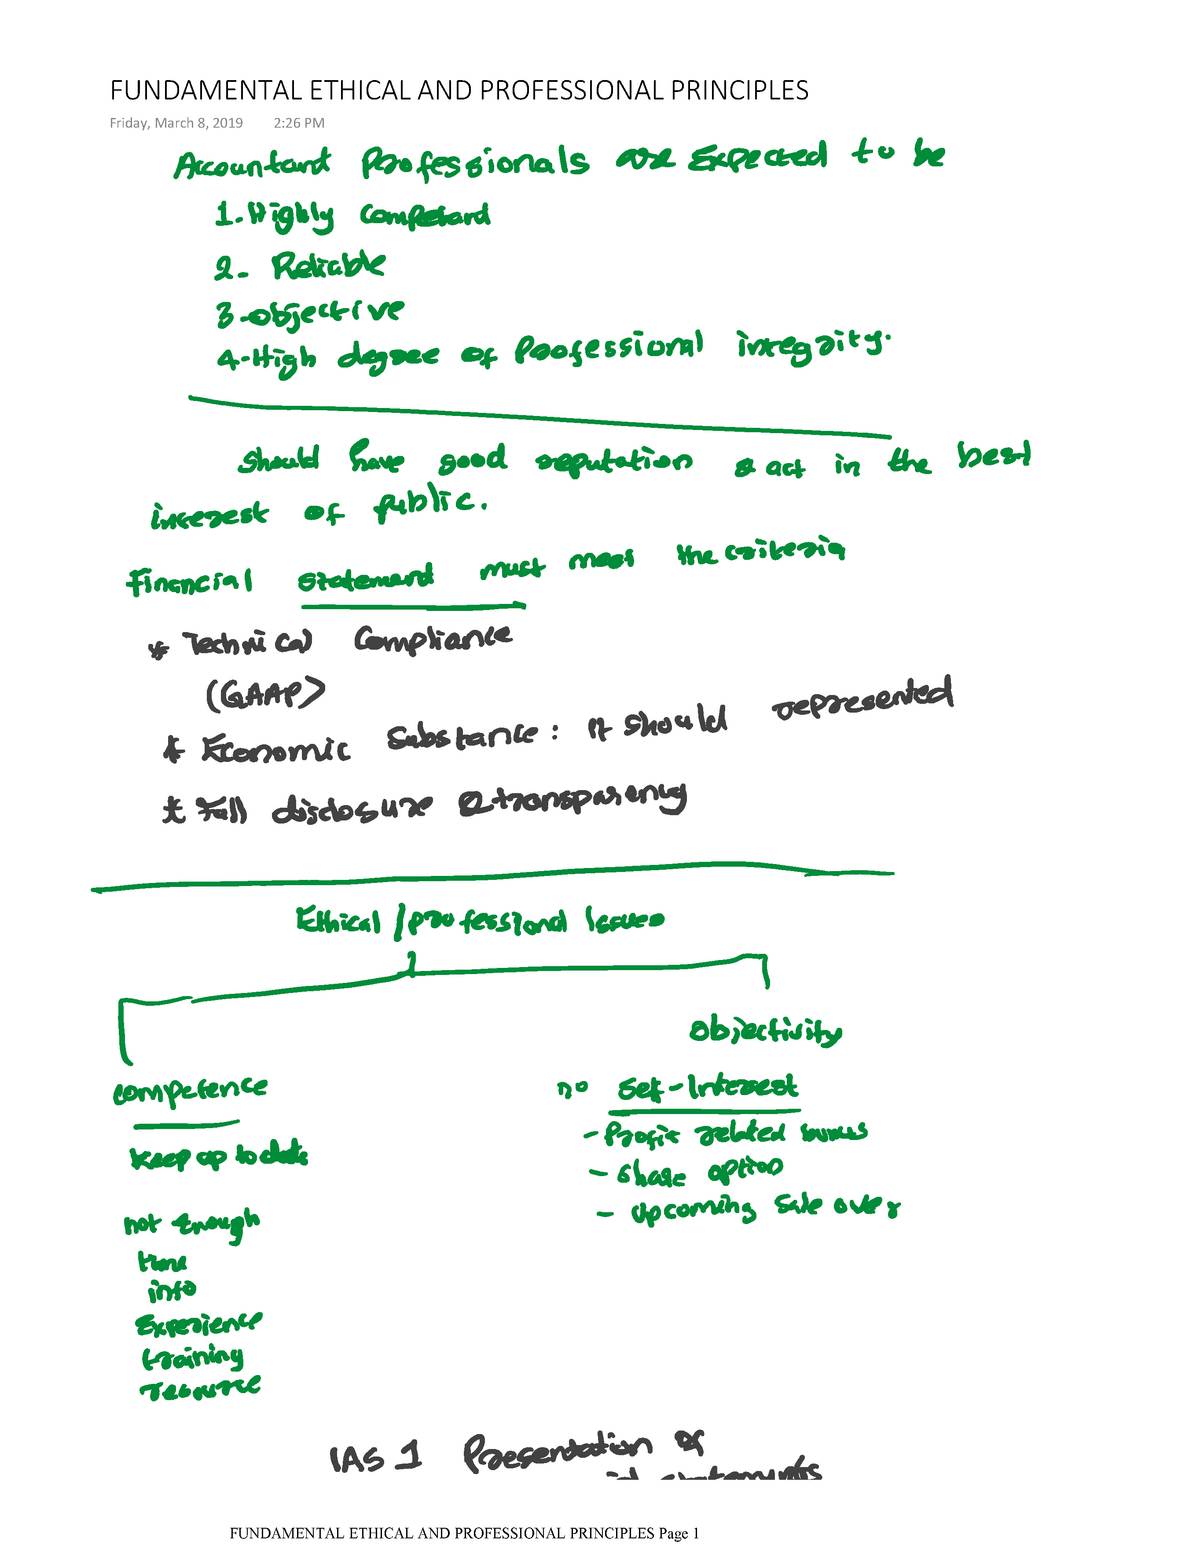 FUNDAMENTAL ETHICAL AND PROFESSIONAL PRINCIPLES
Friday, March 8, 2019 2:26 PM
Accountant Professionals are Expected to be
1.Highly
2- Reliable
3-objective
4-High degree of Professional integrity.
should have good reputation & act in the best
interest of public.
Financial statement must meet the criteria
* Technical Compliance
(GAAP)
* Economic Substance: it should represented
* Full disclosure & transparency
Ethical / professional Issues
Objectivity
competence
no Self-Interest
Keep up to date
- Profit related
- Share option
- Upcoming Sale over
not Enough
time
info
Experience
training
resource
IAS 1 Presentation of
statements
FUNDAMENTAL ETHICAL AND PROFESSIONAL PRINCIPLES Page 1